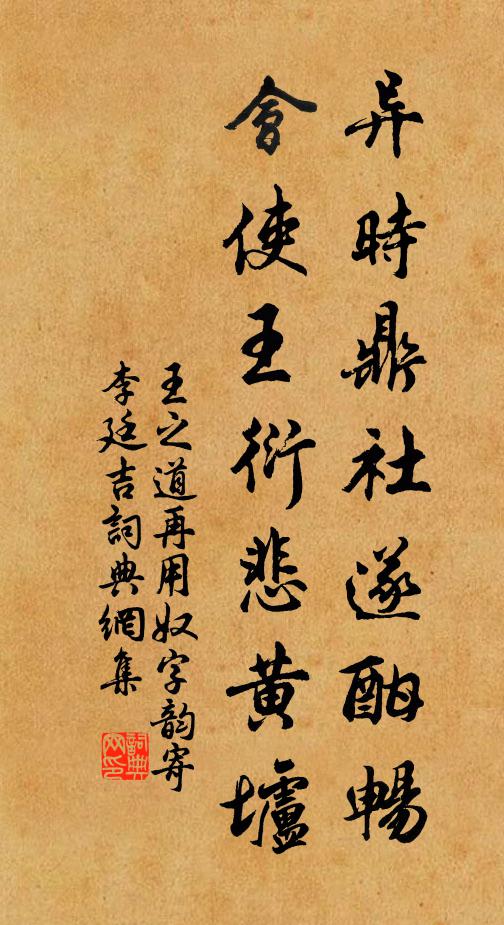 异時鼎社遂酣暢
會使王衍悲黃壚
王之道再用奴字韵寄
李廷吉詞典網集
詞典網印